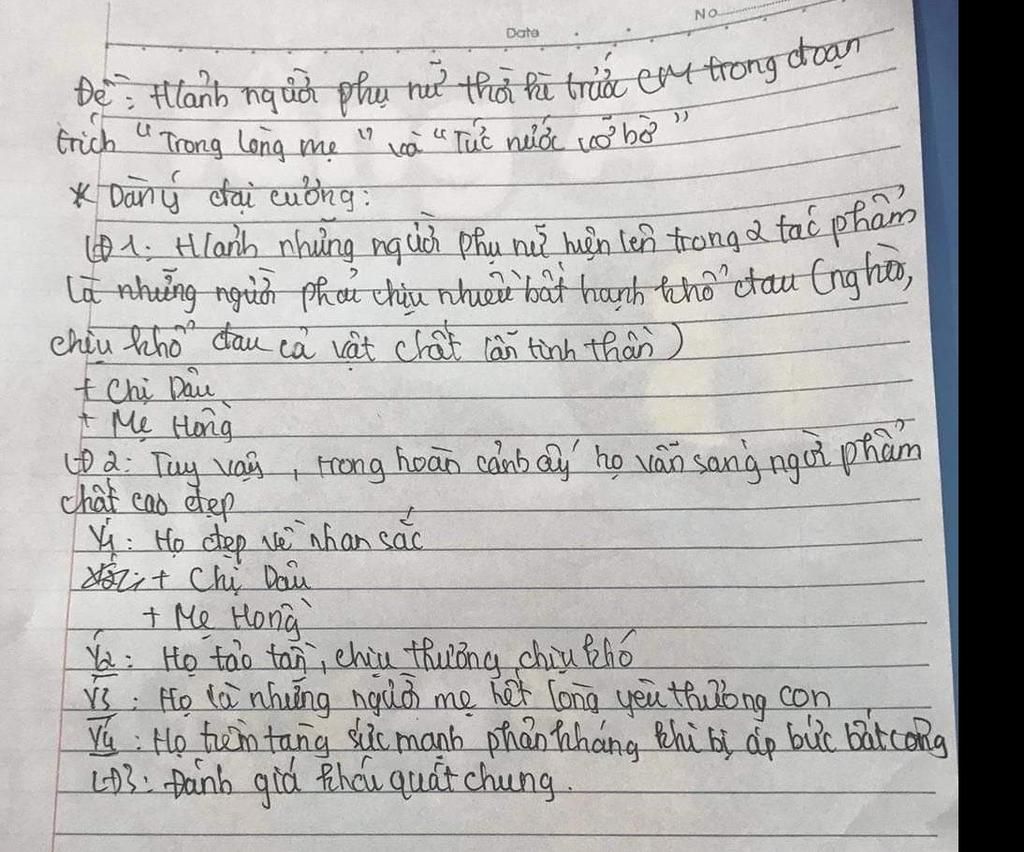 Date
No
Đề: Hình ảnh người phụ nữ thời kì trước CM trong đoạn
trích "Trong lòng mẹ" và "Tức nước vỡ bờ"
* Dàn ý đại cương:
LĐ1: H/ảnh những người phụ nữ hiện lên trong 2 tác phẩm
là những người phải chịu nhiều bất hạnh khổ đau (nghèo,
chịu khổ đau cả vật chất lẫn tinh thần)
+ Chị Dậu
+ Mẹ Hồng
LĐ2: Tuy vậy, trong hoàn cảnh ấy họ vẫn sáng ngời phẩm
chất cao đẹp
Ý1: Họ đẹp về nhan sắc
+ Chị Dậu
+ Mẹ Hồng
Ý2: Họ tảo tần, chịu thương chịu khó
Ý3: Họ là những người mẹ hết lòng yêu thương con
Ý4: Họ tiềm tàng sức mạnh phản kháng khi bị áp bức bất công
LĐ3: Đánh giá khái quát chung.